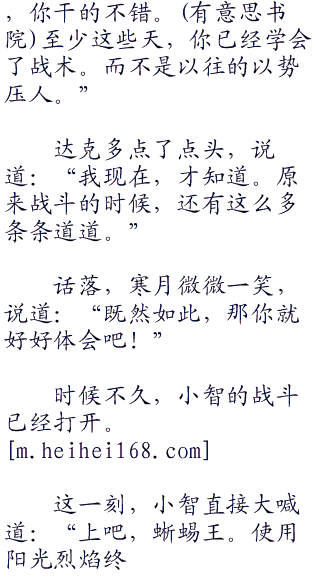 ，你干的不错。(有意思书
院)至少这些天，你已经学会
了战术。而不是以往的以势
压人。”
达克多点了点头，说
道：“我现在，才知道。原
来战斗的时候，还有这么多
条条道道。”
话落，寒月微微一笑，
说道：“既然如此，那你就
好好体会吧！”
时候不久，小智的战斗
已经打开。
[m.heihei168.com]
这一刻，小智直接大喊
道：“上吧，蜥蜴王。使用
阳光烈焰终